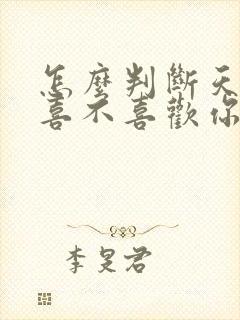 怎麼判斷天
喜不喜歡你
李旻君